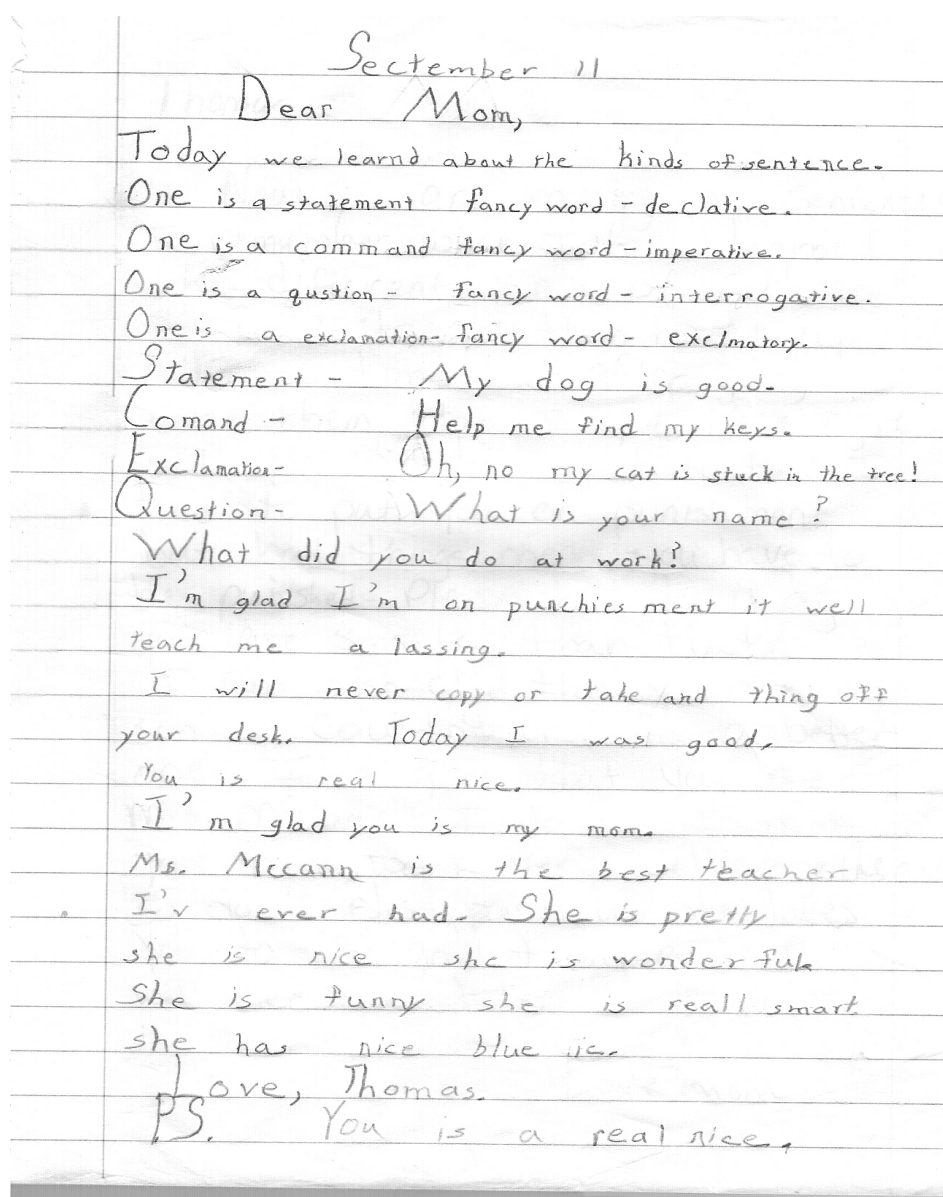 Sectember 11
Dear Mom,
Today we learnd about the kinds of sentence.
One is a statement fancy word - declative.
One is a command fancy word - imperative.
One is a qustion - fancy word - interrogative.
One is a exclamation - fancy word - exclmatory.
Statement - My dog is good.
Comand - Help me find my keys.
Exclamation - Oh, no my cat is stuck in the tree!
Question - What is your name?
What did you do at work?
I'm glad I'm on punchies ment it well
teach me a lassing.
I will never copy or take and thing off
your desk. Today I was good,
You is real nice.
I'm glad you is my mom.
Ms. Mccann is the best teacher
I'v ever had. She is pretty
she is nice she is wonderful.
She is funny she is reall smart.
she has nice blue
Love, Thomas.
PS. You is a real nice.